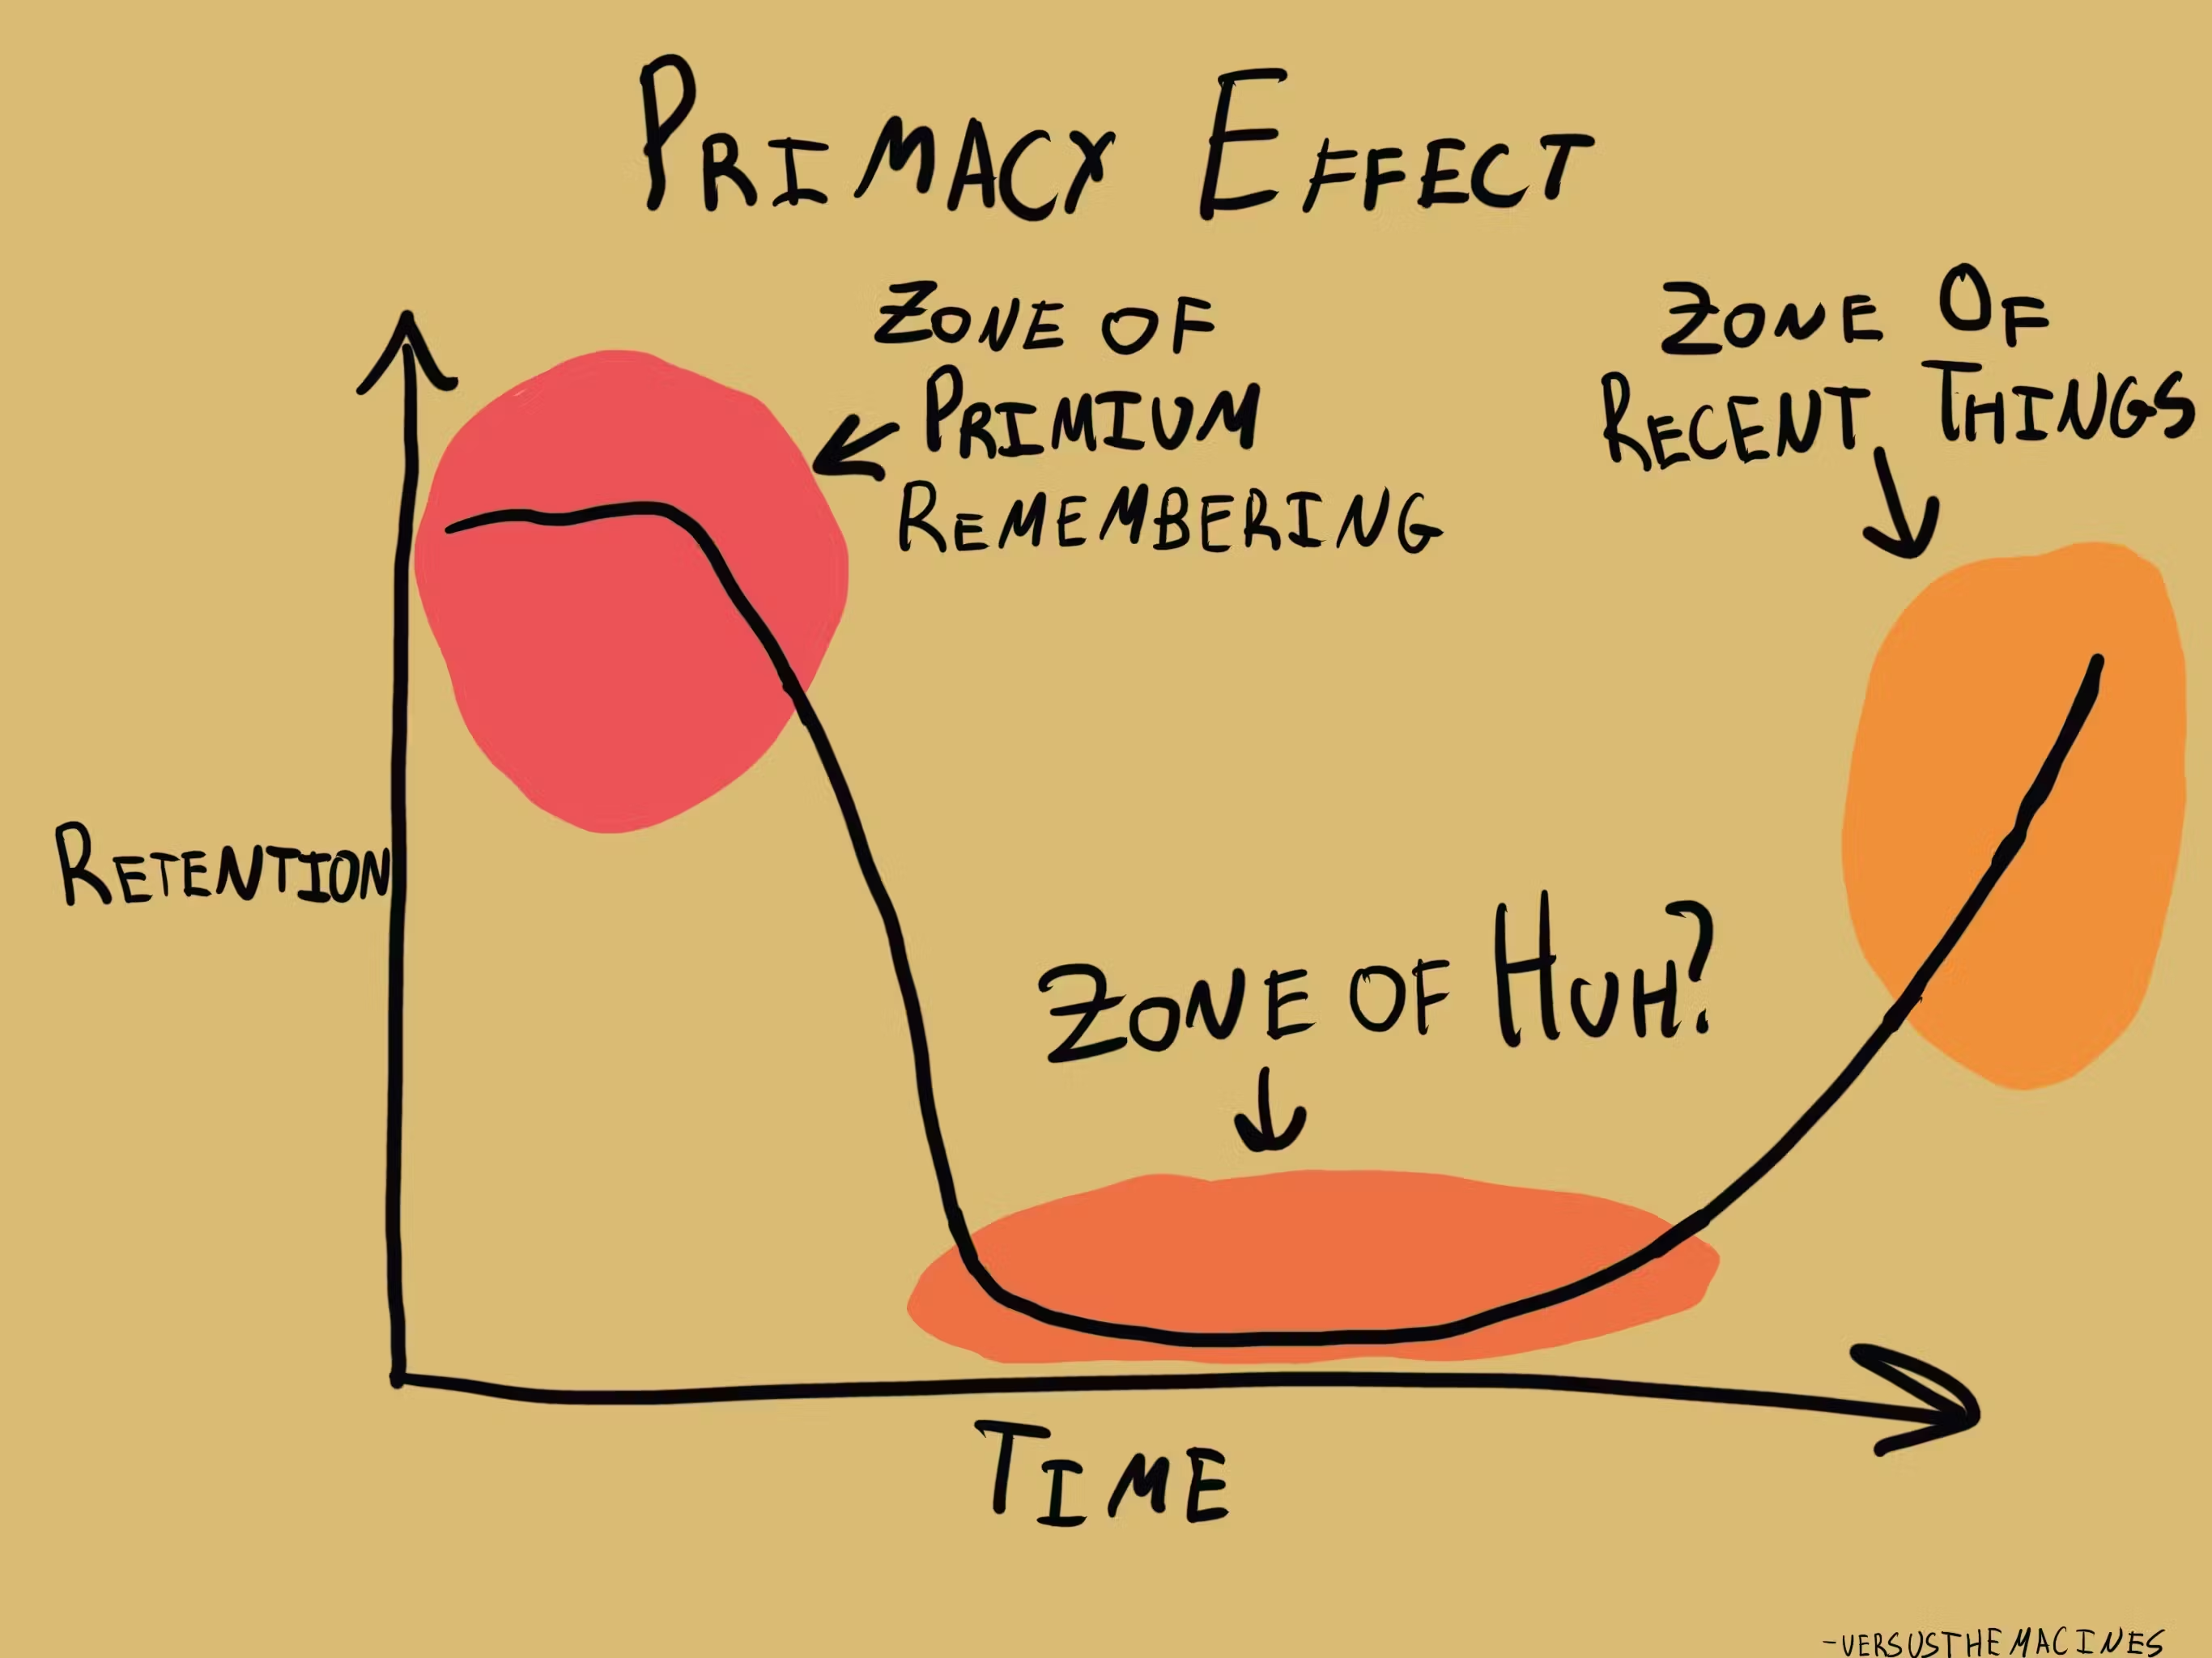 PRIMACY EFFECT
ZONE OF
PRIMIUM
REMEMBERING
ZONE OF
RECENT THINGS
RETENTION
ZONE OF HUH?
TIME
-VERSUSTHEMACINES